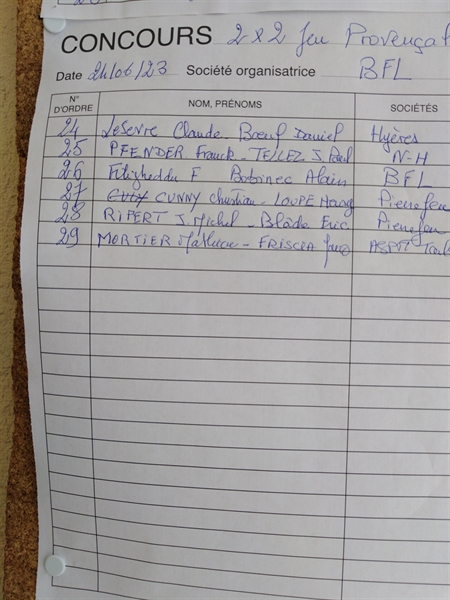 CONCOURS 2x2 Jeu Provençal
Date 24/06/23 Société organisatrice BFL
N° D'ORDRE NOM, PRÉNOMS SOCIÉTÉS
24 Claude - Bœuf Daniel Hyères
25 PFENDER Franck - TELLEZ J. Paul N-H
26 F Alain BFL
27 CUNNY Christian - LOUPE Pierrefeu
28 RIPERT J. Michel - Eric Pierrefeu
29 MORTIER - FRISCIA ASPTT